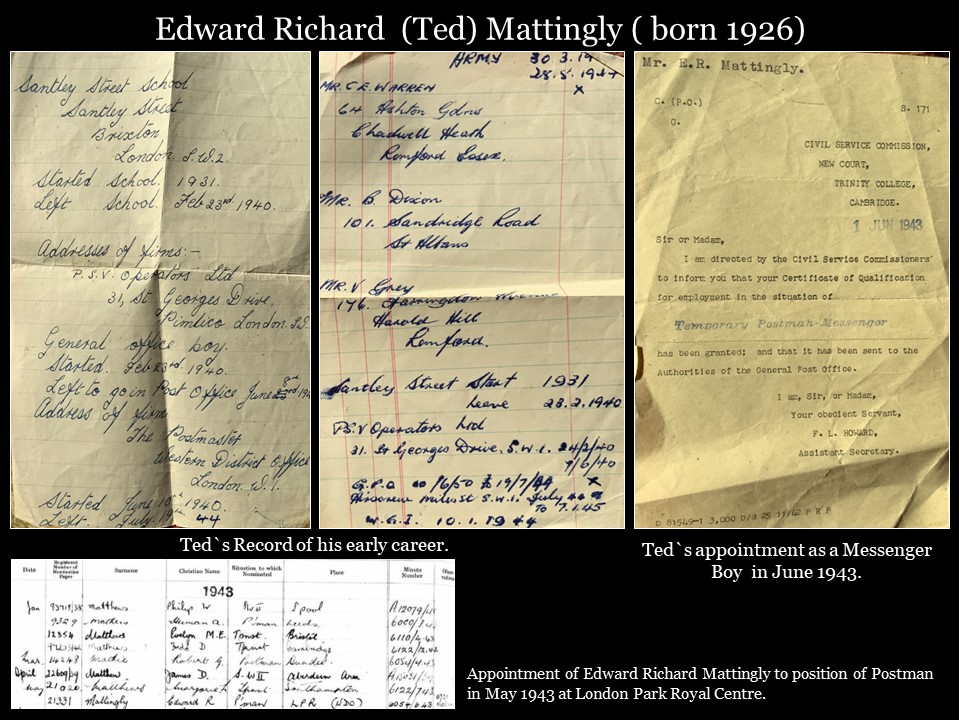 Edward Richard (Ted) Mattingly ( born 1926)
Santley Street School
Santley Street
Brixton
London. S.W.2.
Started School. 1931.
Left School. Feb 23rd. 1940.
Addresses of firms:-
P.S.V. Operators Ltd
31, St Georges Drive,
Pimlico London.
General office boy.
Started. Feb 23rd. 1940.
Left to go in Post Office June 8th
Address of firm
The Postmaster
Western District Office
London. W.1.
Started June 10th 1940.
Left. July. 19th 44
ARMY 30 3.
28.8.1944
MR. C E WARREN x
64 Ashton Gdns
Chadwell Heath
Romford Essex.
Mr. B Dixon
101. Sandridge Road
St Albans
MR. V Grey
176.
Harold Hill
Romford.
Santley Street Start 1931
Leave 23.2.1940
P.S.V Operators Ltd
31. St Georges Drive. S.W.1. 24/2/40
7/6/40
G.P.O 10/6/50 19/7/44 x
S.W.1. July
To 7.1.45
W.G.I. 10.1.1944
Mr. E.R. Mattingly.
C. (P.O.) S. 171
G.
CIVIL SERVICE COMMISSION,
NEW COURT,
TRINITY COLLEGE,
CAMBRIDGE.
1 JUN 1943
Sir or Madam,
I am directed by the Civil Service Commissioners
to inform you that your Certificate of Qualification
for employment in the situation of
Temporary Postman-Messenger
has been granted; and that it has been sent to the
Authorities of the General Post Office.
I am, Sir, or Madam,
Your obedient Servant,
F. L. HOWARD,
Assistant Secretary.
D 81549-1 3,000 D/d 25 11/42 P R P
Ted`s Record of his early career.
Ted`s appointment as a Messenger
Boy in June 1943.
Date Registered Number of Nomination Paper Surname Christian Name Situation to which Nominated Place Minute Number
1943
Jan 93719/38 Matthews Philip W S'pool A12079/41
9329 Mathers Herman A. P'man Leeds 6000/
12354 Matthews Evelyn M.E. Bristol 6110/4.43
Matthews D 6122/
Mar. 14248 Mackie Robert G. Postman Dundee 6054/4.43
April 22609/ Matthew James D. S.W II Aberdeen
May 21020 Matthews Margaret Southampton 6122/743
21331 Mattingly Edward R P'man LPR (NDO) 6054/6.43
Appointment of Edward Richard Mattingly to position of Postman
in May 1943 at London Park Royal Centre.